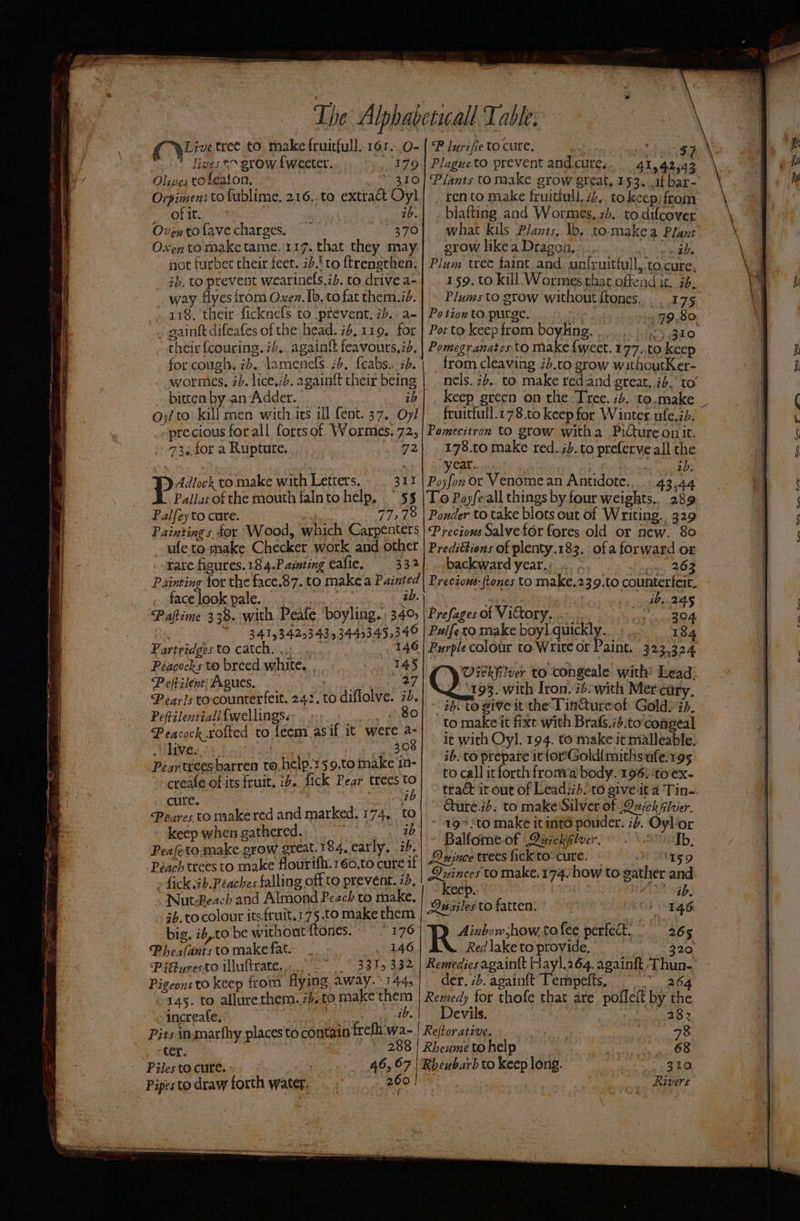 The Alphabeticall Table.
OLive tree to make fruitfull. 161. O-
lives to grow sweeter. 179
Olives to season. 310
Orpiment to sublime. 216. to extract Oyl
of it. ib.
Oven to save charges. 370
Oxen to make tame. 117. that they may
not surbet their feet. ib. to strengthen.
ib. to prevent wearinesse. ib. to drive a-
way flyes from Oxen. Ib. to fat them. ib.
118. their sicknesse to prevent. ib. a-
gainst diseases of the head. ib. 119. for
their scouring. ib. against feavours, ib.
for cough. ib. lamenesse ib. scabs. ib.
wormes. ib. lice. ib. against their being
bitten by an Adder. ib
Oyl to kill men with its ill sent. 37. Oyl
precious for all sorts of Wormes. 72,
73. for a Rupture. 72
PAdlock to make with Letters. 311
Pallat of the mouth faln to help. 55
Palsey to cure. 77, 78
Paintings for Wood, which Carpenters
use to make Checker work and other
rare figures. 184. Painting easie. 332
Painting for the face. 87. to make a Painted
face look pale. ib.
Pastime 338. with Pease boyling. 340,
341, 342, 343, 344, 345, 346
Partridges to catch. 146
Peacocks to breed white. 145
Pestilent Agues. 27
Pearls to counterfeit. 242. to dissolve. ib.
Pestilentiall swellings. 80
Peacock rosted to seem as if it were a-
live. 308
Pear trees barren to help. 159. to make in-
crease of its fruit. ib. sick Pear trees to
cure. ib
Peares to make red and marked. 174. to
keep when gathered. ib
Pease to make grow great. 184. early. ib.
Peach trees to make flourish. 160. to cure if
sick. ib. Peaches falling off to prevent. ib.
Nut-Peach and Almond Peach to make.
ib. to colour its fruit. 175. to make them
big. ib, to be without stones. 176
Pheasants to make fat. 146
Pictures to illustrate. 331, 332
Pigeons to keep from flying away. 144,
145. to allure them. ib. to make them
increase. ib.
Pits in marshy places to contain fresh wa-
ter. 288
Piles to cure. 46, 67
Pipes to draw forth water. 260
Plurisie to cure. 52
Plague to prevent and cure. 41, 42, 43
Plants to make grow great, 153. if bar-
ren to make fruitfull. ib. to keep from
blasting and Wormes. ib. to discover
what kils Plants. Ib. to make a Plant
grow like a Dragon. ib.
Plum tree faint and unfruitfull, to cure.
159. to kill Wormes that offend it. ib.
Plums to grow without stones. 175
Potion to purge. 79. 80
Pot to keep from boyling. 310
Pomegranates to make sweet. 177. to keep
from cleaving ib. to grow without Ker-
nels. ib. to make red and great. ib. to
keep green on the Tree. ib. to make
fruitfull. 178. to keep for Winter use. ib.
Pomecitron to grow with a Picture on it.
178. to make red. ib. to preserve all the
year. ib.
Poyson or Venome an Antidote. 43, 44
To Poyse all things by four weights. 289
Pouder to take blots out of Writing. 329
Precious Salve for sores old or new. 80
Predictions of plenty. 183. of a forward or
backward year. 263
Precious-stones to make. 239. to counterfeit.
ib. 245
Presages of Victory. 304
Pulse to make boyl quickly. 184
Purple colour to Write or Paint. 323, 324
QVicksilver to congeale with Lead.
193. with Iron. ib. with Mercury.
ib. to give it the Tincture of Gold. ib.
to make it fixt with Brass. ib. to congeal
it with Oyl. 194. to make it malleable.
ib. to prepare it for Goldsmiths use. 195
to call it forth from a body. 196. to ex-
tract it out of Lead. ib. to give it a Tin-
cture. ib. to make Silver of Quicksilver.
197. to make it into pouder. ib. Oyl or
Balsome of Quicksilver. Ib.
Quince trees sick to cure. 159
Quinces to make. 174. how to gather and
keep. ib.
Quailes to fatten. 146
RAinbow, how to see perfect. 265
Red lake to provide. 320
Remedies against Hayl. 264. against Thun-
der. ib. against Tempests, 264
Remedy for those that are possest by the
Devils. 282
Restorative. 78
Rheume to help 68
Rheubarb to keep long. 310
Rivers